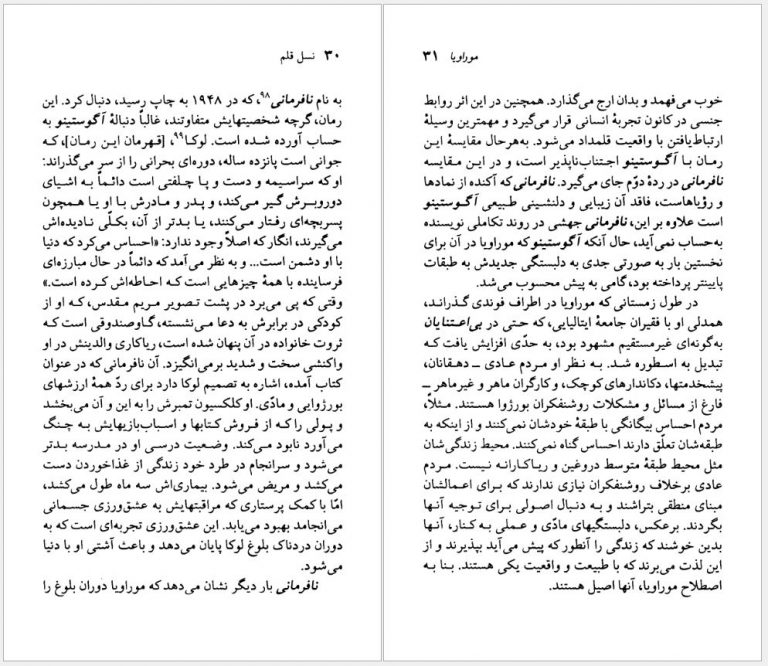 ۳۰ نسل قلم
به نام نافرمانی۹۸، که در ۱۹۴۸ به چاپ رسید، دنبال کرد. این
رمان، گرچه شخصیتهایش متفاوتند، غالباً دنبالهٔ آگوستینو به
حساب آورده شده است. لوکا۹۹، [قهرمان این رمان]، که
جوانی است پانزده ساله، دوره‌ای بحرانی را از سر می‌گذراند:
او که سراسیمه و دست و پا چلفتی است دائماً به اشیای
دوروبرش گیر می‌کند، و پدر و مادرش با او یا همچون
پسربچه‌ای رفتار می‌کنند، یا بدتر از آن، بکلّی نادیده‌اش
می‌گیرند، انگار که اصلاً وجود ندارد: «احساس می‌کرد که دنیا
با او دشمن است... و به نظر می‌آمد که دائماً در حال مبارزه‌ای
فرساینده با همهٔ چیزهایی است که احاطه‌اش کرده است.»
وقتی که پی می‌برد در پشت تصویر مریم مقدس، که او از
کودکی در برابرش به دعا می‌نشسته، گاوصندوقی است که
ثروت خانواده در آن پنهان شده است، ریاکاری والدینش در او
واکنشی سخت و شدید برمی‌انگیزد. آن نافرمانی که در عنوان
کتاب آمده، اشاره به تصمیم لوکا دارد برای ردّ همهٔ ارزشهای
بورژوایی و مادّی. او کلکسیون تمبرش را به این و آن می‌بخشد
و پولی را که از فروش کتابها و اسباب‌بازیهایش به چنگ
می‌آورد نابود می‌کند. وضعیت درسی او در مدرسه بدتر
می‌شود و سرانجام در طرد خود زندگی از غذاخوردن دست
می‌کشد و مریض می‌شود. بیماری‌اش سه ماه طول می‌کشد،
امّا با کمک پرستاری که مراقبتهایش به عشق‌ورزی جسمانی
می‌انجامد بهبود می‌یابد. این عشق‌ورزی تجربه‌ای است که به
دوران دردناک بلوغ لوکا پایان می‌دهد و باعث آشتی او با دنیا
می‌شود.
نافرمانی بار دیگر نشان می‌دهد که موراویا دوران بلوغ را
موراویا ۳۱
خوب می‌فهمد و بدان ارج می‌گذارد. همچنین در این اثر روابط
جنسی در کانون تجربهٔ انسانی قرار می‌گیرد و مهمترین وسیلهٔ
ارتباط‌یافتن با واقعیت قلمداد می‌شود. به‌هرحال مقایسهٔ این
رمان با آگوستینو اجتناب‌ناپذیر است، و در این مقایسه
نافرمانی در ردهٔ دوّم جای می‌گیرد. نافرمانی که آکنده از نمادها
و رؤیاهاست، فاقد آن زیبایی و دلنشینی طبیعی آگوستینو
است علاوه بر این، نافرمانی جهشی در روند تکاملی نویسنده
به‌حساب نمی‌آید، حال آنکه آگوستینو که موراویا در آن برای
نخستین بار به صورتی جدی به دلبستگی جدیدش به طبقات
پایینتر پرداخته بود، گامی به پیش محسوب می‌شد.
در طول زمستانی که موراویا در اطراف فوندی گذرانـد،
همدلی او با فقیران جامعهٔ ایتالیایی، که حتی در بی‌اعتنایان
به‌گونه‌ای غیرمستقیم مشهود بود، به حدّی افزایش یافت که
تبدیل به اسطوره شد. به نظر او مردم عادی ــ دهقانان،
پیشخدمتها، دکاندارهای کوچک، و کارگران ماهر و غیرماهر ــ
فارغ از مسائل و مشکلات روشنفکران بورژوا هستند. مثلاً،
مردم احساس بیگانگی با طبقهٔ خودشان نمی‌کنند و از اینکه به
طبقه‌شان تعلّق دارند احساس گناه نمی‌کنند. محیط زندگی‌شان
مثل محیط طبقهٔ متوسط دروغین و ریاکارانه نیست. مردم
عادی برخلاف روشنفکران نیازی ندارند که برای اعمالشان
مبنای منطقی بتراشند و به دنبال اصولی برای توجیه آنها
بگردند. برعکس، دلبستگیهای مادّی و عملی به کنار، آنها
بدین خوشند که زندگی را آنطور که پیش می‌آید بپذیرند و از
این لذت می‌برند که با طبیعت و واقعیت یکی هستند. بنا به
اصطلاح موراویا، آنها اصیل هستند.